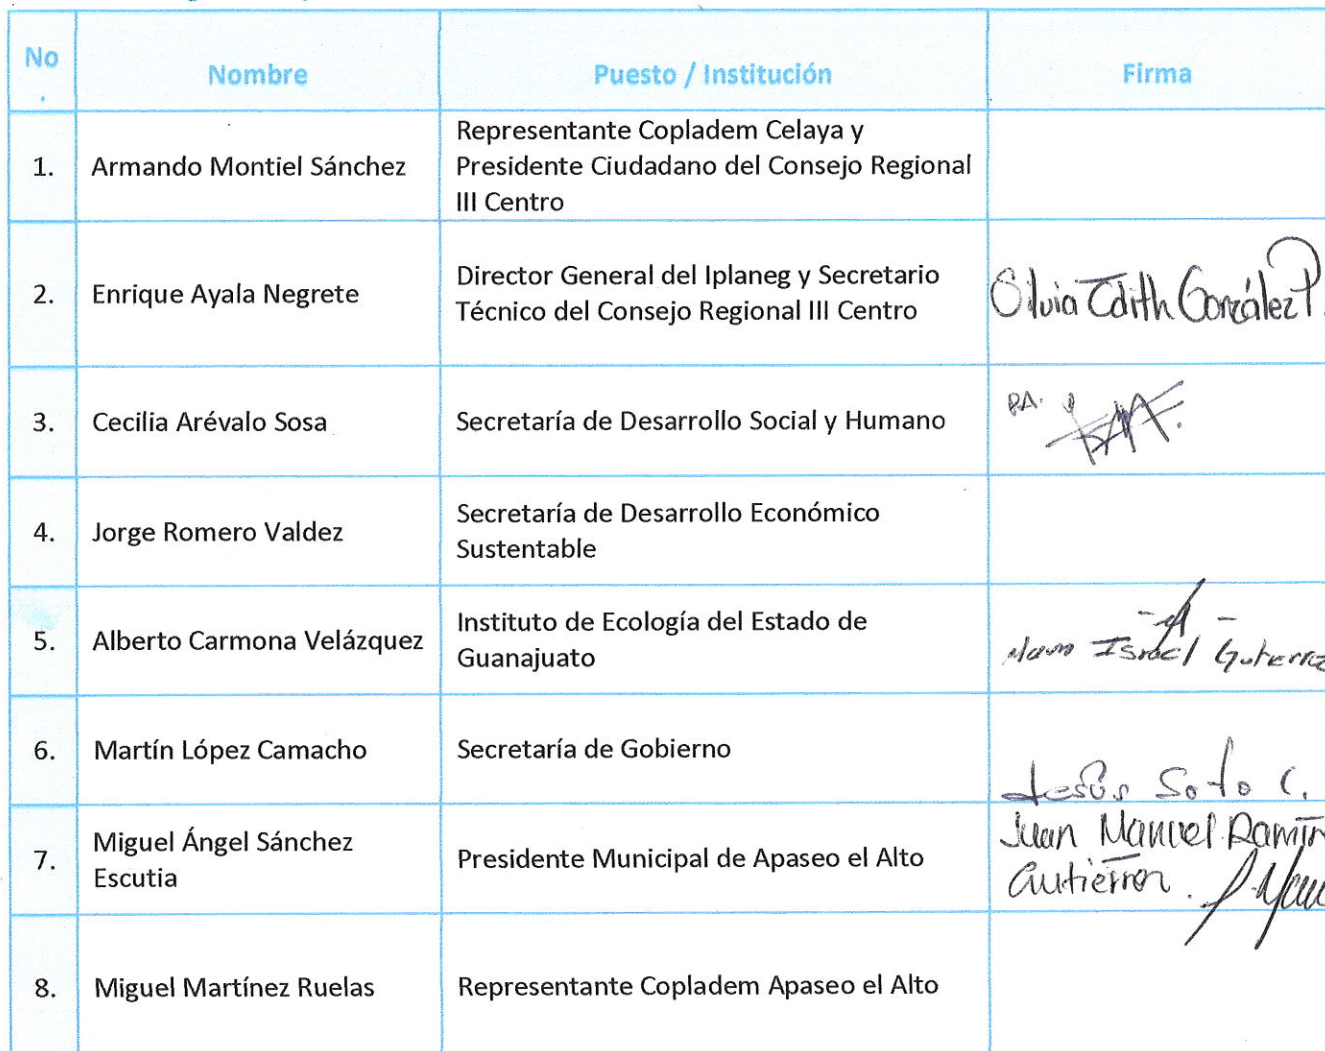 No
.
Nombre
Puesto / Institución
Firma
1.
Armando Montiel Sánchez
Representante Copladem Celaya y
Presidente Ciudadano del Consejo Regional
III Centro
2.
Enrique Ayala Negrete
Director General del Iplaneg y Secretario
Técnico del Consejo Regional III Centro
Silvia Edith González P.
3.
Cecilia Arévalo Sosa
Secretaría de Desarrollo Social y Humano
P.A.
4.
Jorge Romero Valdez
Secretaría de Desarrollo Económico
Sustentable
5.
Alberto Carmona Velázquez
Instituto de Ecología del Estado de
Guanajuato
Israel
6.
Martín López Camacho
Secretaría de Gobierno
Jesús Soto C.
7.
Miguel Ángel Sánchez
Escutia
Presidente Municipal de Apaseo el Alto
Juan Manuel Ramír
8.
Miguel Martínez Ruelas
Representante Copladem Apaseo el Alto